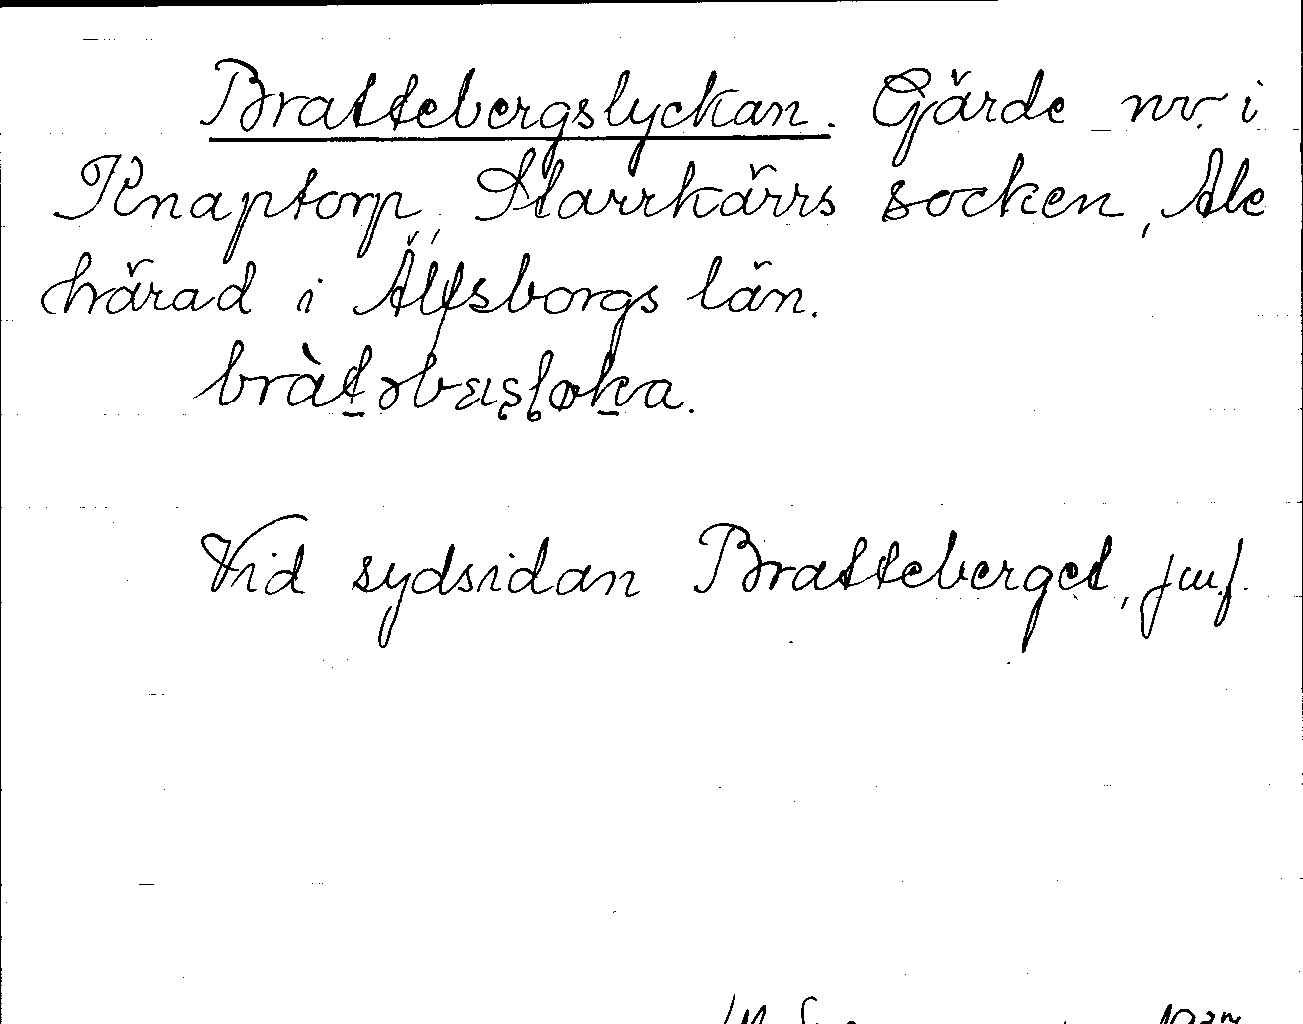 Brattebergslyckan. Gärde nv. i
Knaptorp, Starrkärrs socken, Ale
härad i Älfsborgs län.
bràt̲əbæꞮʂɭøk̲a.
Vid sydsidan Bratteberget, jmf.